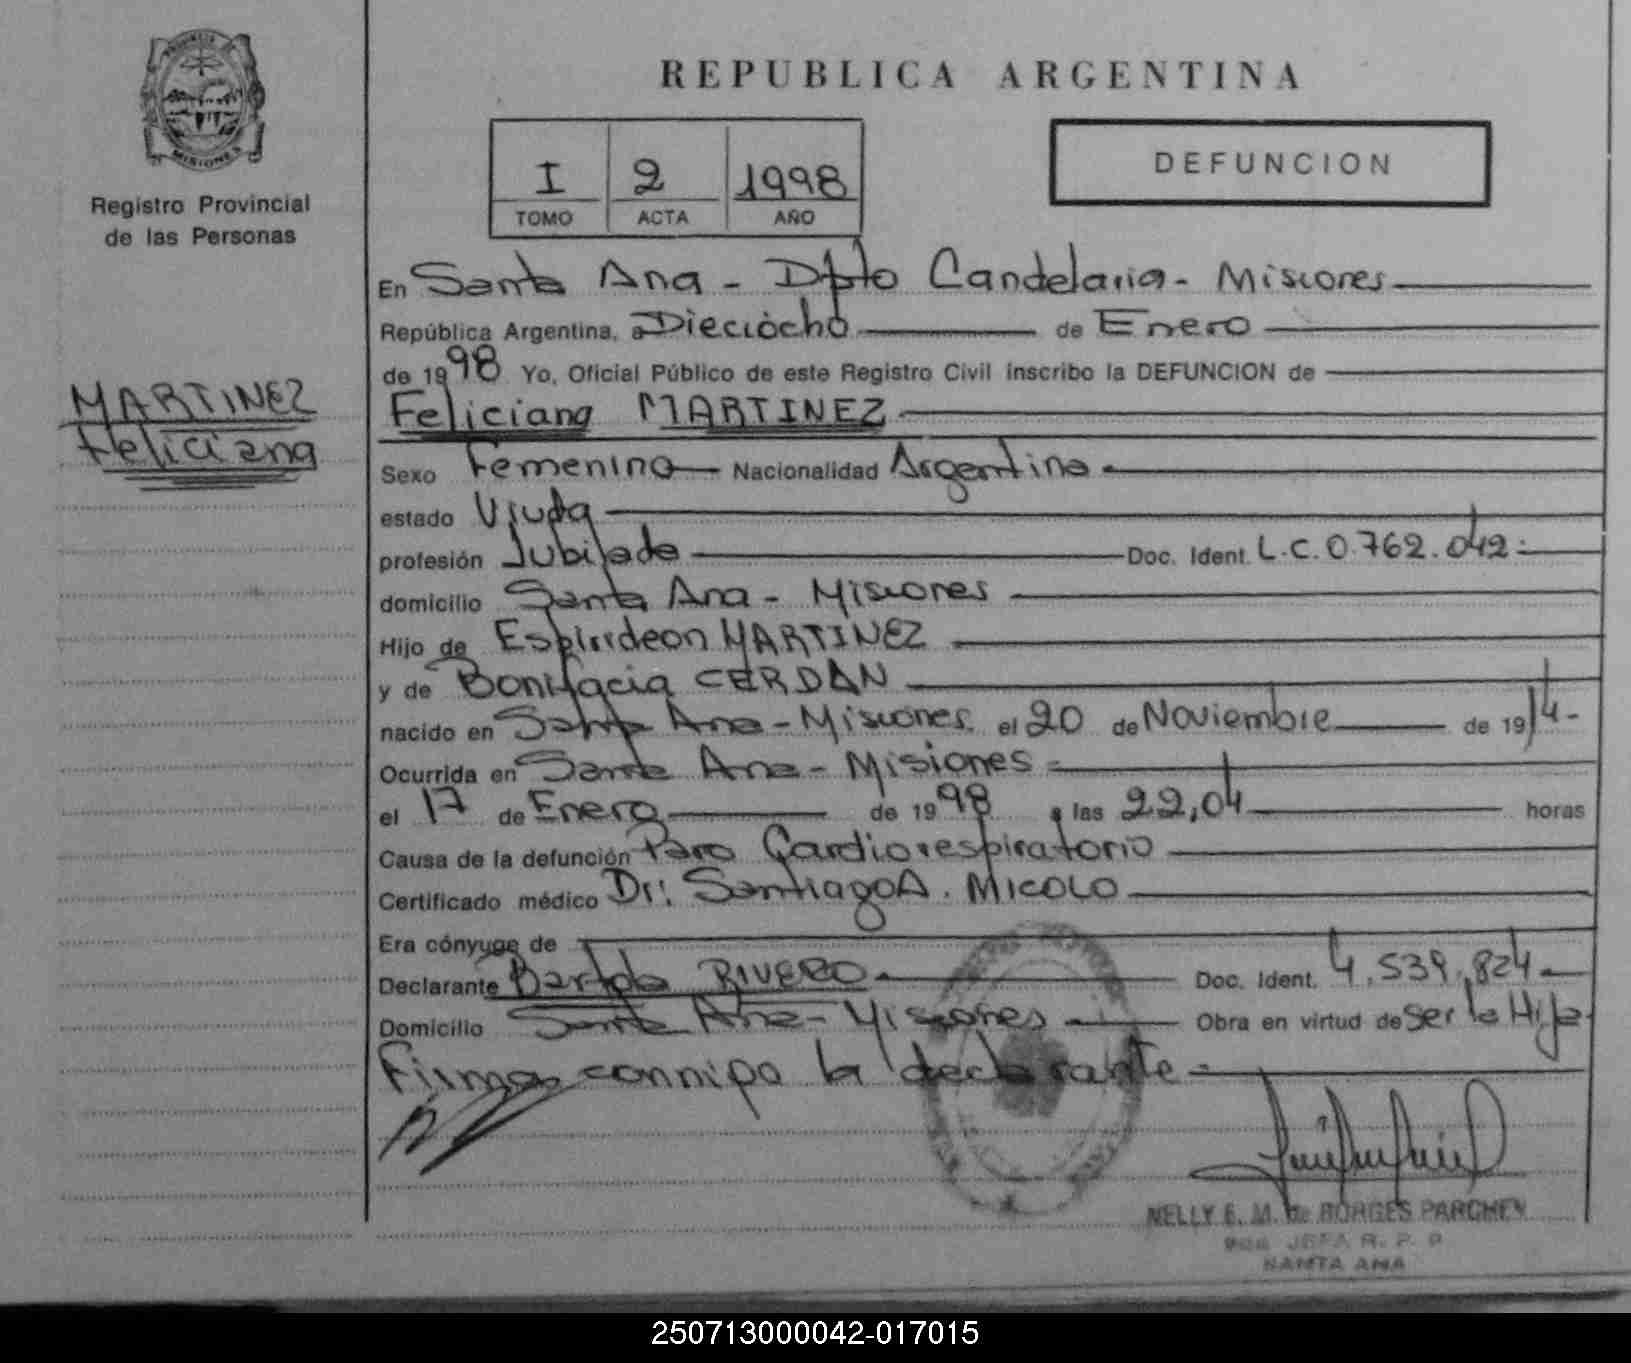 PROVINCIA DE
MISIONES
Registro Provincial
de las Personas
MARTINEZ
Feliciana
REPUBLICA ARGENTINA
I 2 1998
TOMO ACTA AÑO
DEFUNCION
En Santa Ana - Dpto Candelaria - Misiones
República Argentina, a Dieciocho de Enero
de 1998 Yo, Oficial Público de este Registro Civil inscribo la DEFUNCION de
Feliciana MARTINEZ
Sexo Femenino Nacionalidad Argentina
estado Viuda
profesión Jubilada Doc. Ident. L.C. 0.762.042
domicilio Santa Ana - Misiones
Hijo de MARTINEZ
y de Bonifacia CERDAN
nacido en Santa Ana - Misiones. el 20 de Noviembre de 1914-
Ocurrida en Santa Ana - Misiones
el 17 de Enero de 1998 a las 22,04 horas
Causa de la defunción Paro Cardiorespiratorio
Certificado médico Dr: Santiago A. MICOLO
Era cónyuge de
Declarante Bartola RIVERO Doc. Ident. 4.539.824
Domicilio Santa Ana - Misiones Obra en virtud de ser la Hija
Firma conmigo la declarante
NELLY E. M. de BORGES PARCHEN
JEFA R. P. P
SANTA ANA
250713000042-017015